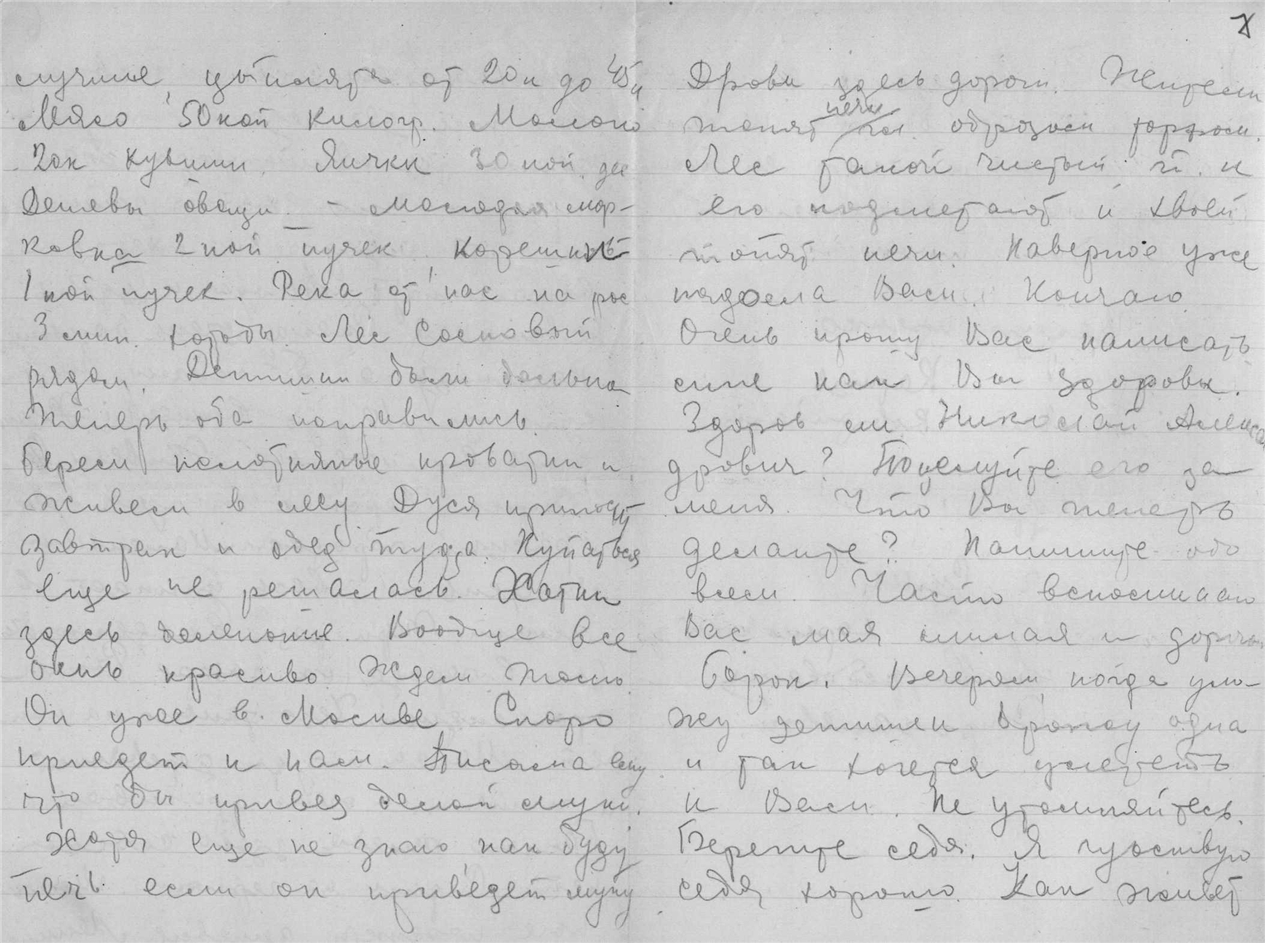 лучше, цыплята от 20 к до 45 к
Мясо 50 коп килогр. Молоко
20к кувшин. Яички 30 коп. дес
Дешевы овощи – молодая мор-
ковка 2 коп пучек корешки
1 коп пучек. Река от нас на рас
3 мин. ходьбы. Лес сосновый
рядом. Детишки были больны
теперь оба поправились.
берем полотняные кроватки и
живем в лесу Дуся приносит
завтрак и обед туда. Купаться
еще не решалась. Хатки
здесь беленькие. Вообще все
очень красиво. Ждем
Он уже в Москве. Скоро
приедет к нам. Писала ему
что бы привез белой муки.
Хотя еще не знаю, как буду
печь если он приведет муку
7
Дрова здесь дороги. Жители
печи
топят гл. образом торфом.
Лес такой чистый т. к
его подметают и хвоей
топят печи. Наверное уже
надоела Вам. Кончаю
Очень прошу Вас написать
мне как Вы здоровы.
Здоров ли Николай Алекса
дрович? Поцелуйте его за
меня. Что Вы теперь
делаите? Напишите обо
всем. Часто вспоминаю
Вас мая милая и дорогая
Вечером, когда уло-
жу детишек брожу одна
и так хочется улететь
к Вам. Не утомляйтесь.
Берегите себя. Я чувствую
себя хорошо. Как живет